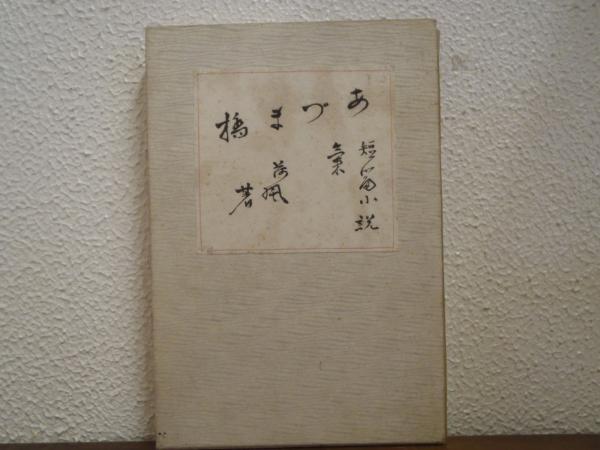 あづま橋
短篇小説
彙
荷風
著